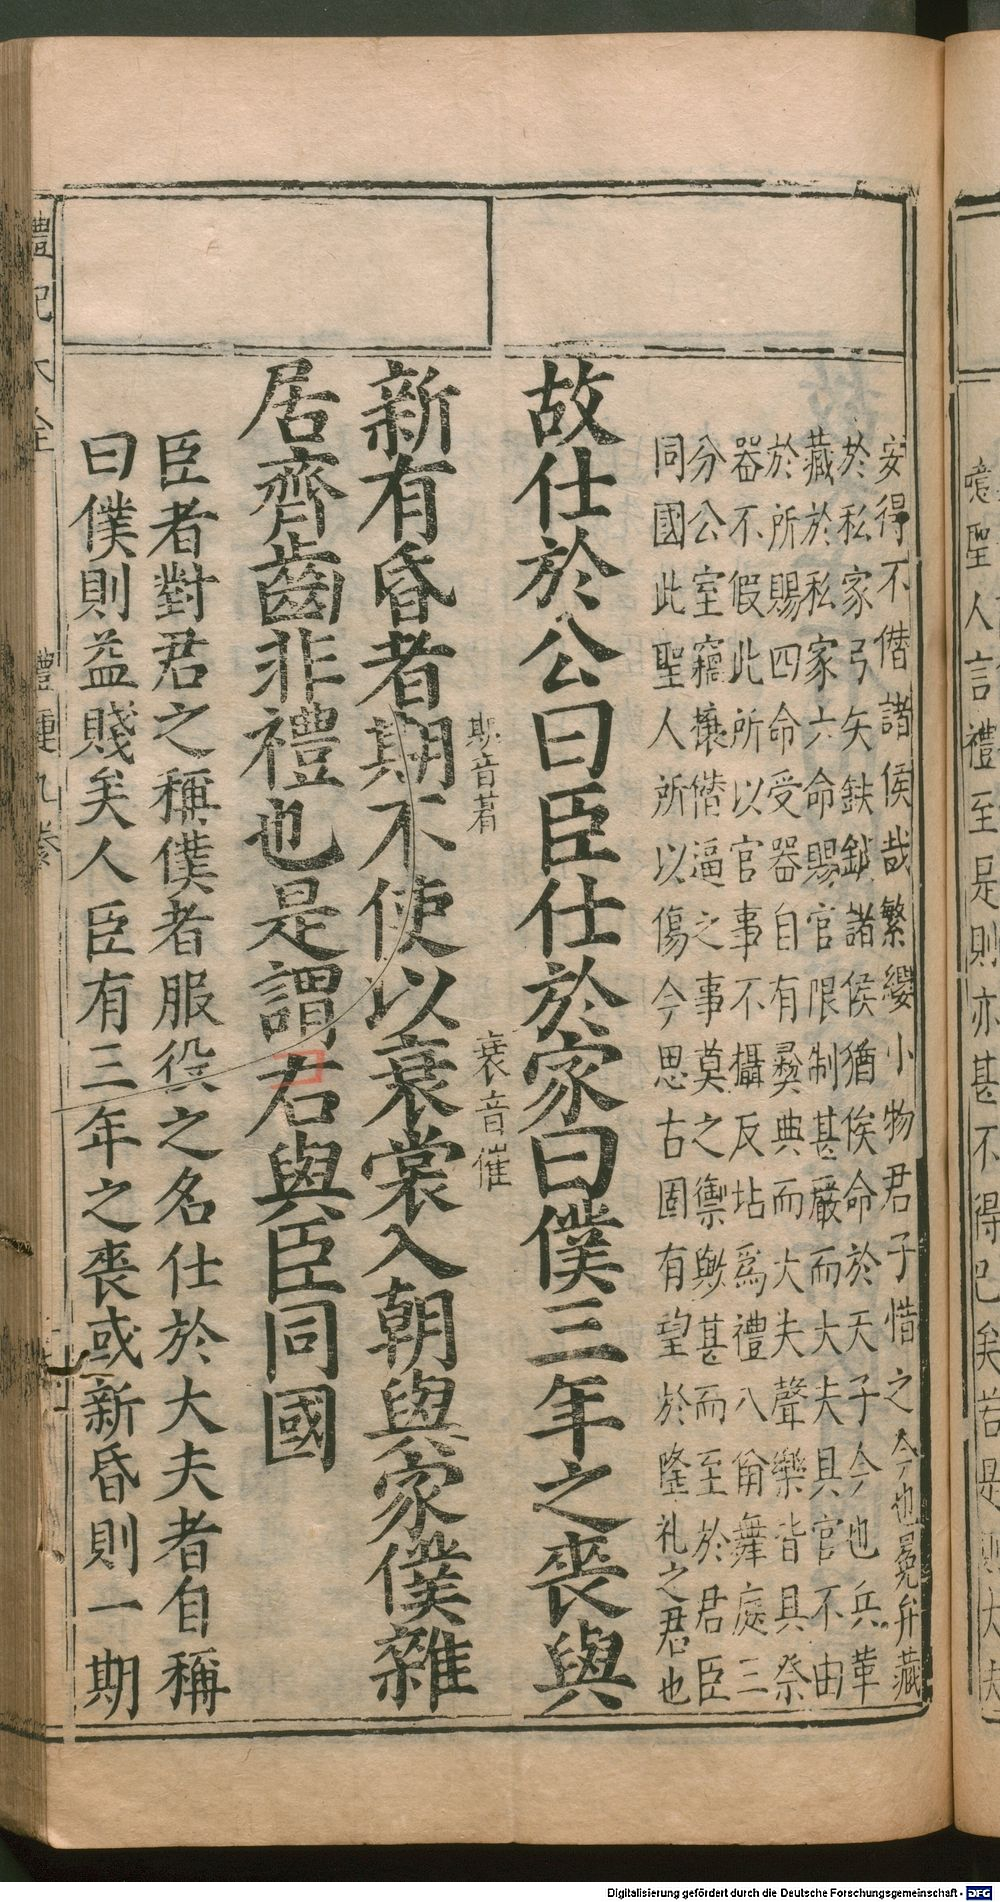 安得不僭諸侯哉繁纓小物君子惜之今也冕弁藏
於私家弓矢鈇鉞諸侯猶俟命於天子今也兵革
藏於私家六命賜官限制甚嚴而大夫具官不由
於所賜四命受器自有彜典而大夫聲樂皆具祭
器不假此所以官事不攝反坫爲禮八佾舞庭三
分公室竊攘僭逼之事莫之禦與甚而至於君臣
同國此聖人所以傷今思古固有望於隆礼之君也
故仕於公曰臣仕於家曰僕三年之喪與
期音朞 衰音催
新有昏者期不使以衰裳入朝與家僕雜
居齊齒非禮也是謂君與臣同國
臣者對君之稱僕者服役之名仕於大夫者自稱
曰僕則益賤矣人臣有三年之喪或新昏則一期
禮記大全 禮運九卷
聖人言禮至是則亦甚不得已矣若是則大夫
Digitalisierung gefördert durch die Deutsche Forschungsgemeinschaft - DFG